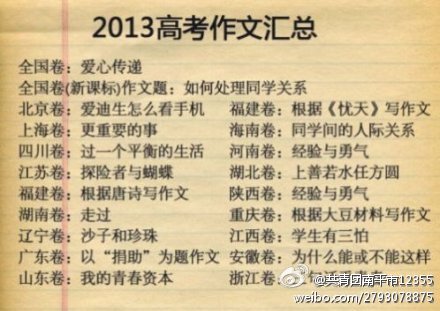 2013高考作文汇总
全国卷：爱心传递
全国卷(新课标)作文题：如何处理同学关系
北京卷：爱迪生怎么看手机 福建卷：根据《忧天》写作文
上海卷：更重要的事 海南卷：同学间的人际关系
四川卷：过一个平衡的生活 河南卷：经验与勇气
江苏卷：探险者与蝴蝶 湖北卷：上善若水任方圆
福建卷：根据唐诗写作文 陕西卷：经验与勇气
湖南卷：走过 重庆卷：根据大豆材料写作文
辽宁卷：沙子和珍珠 江西卷：学生有三怕
广东卷：以“捐助”为题作文 安徽卷：为什么能或不能这样
山东卷：我的青春资本 浙江卷：
@共青团南平市12355
weibo.com/2793078875